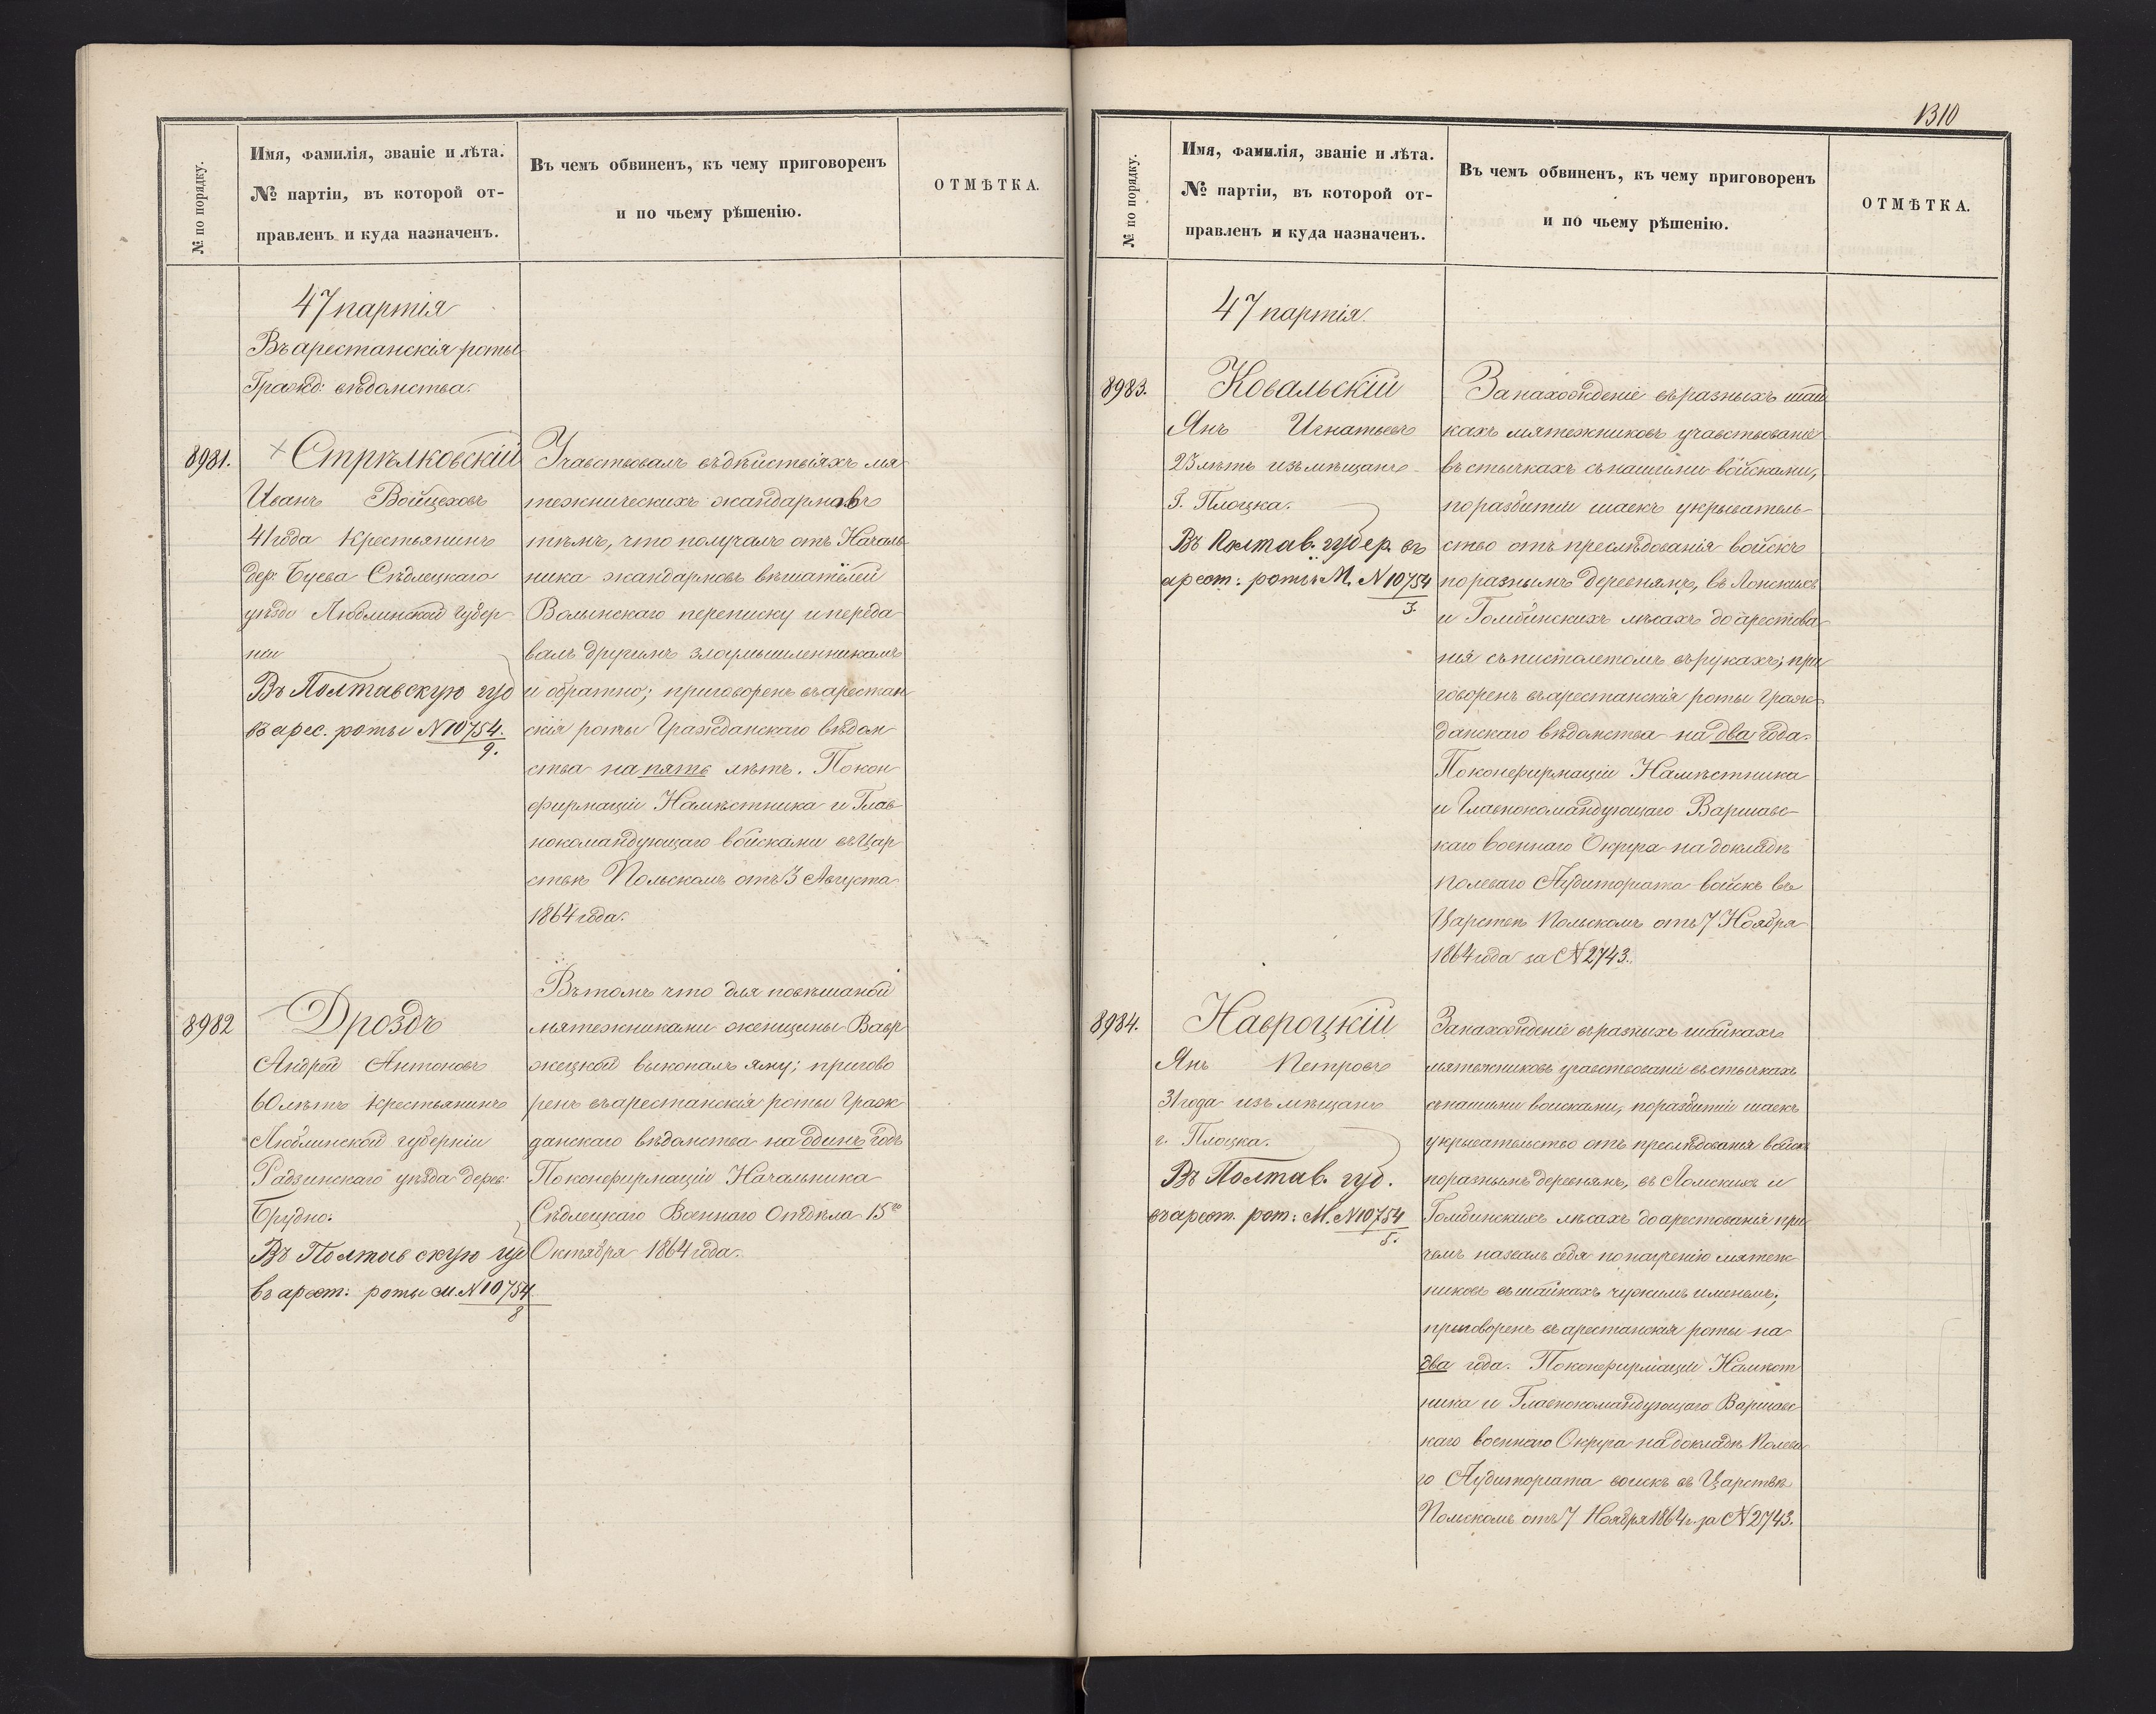 № по порядку.
Имя, фамилія, званіе и лѣта.
№ партіи, въ которой от-
правленъ и куда назначенъ.
Въ чемъ обвиненъ, къ чему приговоренъ
и по чьему рѣшенію.
ОТМѢТКА.
47 партія
Въ арестанскія роты
Гражд: вѣдомства.
8981.
Стрѣлковскій
Иванъ Войцеховъ
41 года крестьянинъ
дер: Буева Сѣдлецкаго
уѣзда Люблинской Губер
ніи
Въ Полтавскую губ
въ арес. роты N 10754.
9.
Учавствовалъ въ дѣйствіяхъ мя
тежническихъ жандармовъ
тѣмъ, что получалъ отъ Началь
ника жандармовъ вѣшателей
Волынскаго переписку и переда
валъ другимъ злоумышленникамъ
и обратно; приговоренъ въ арестан
скія роты Гражданскаго вѣдом
ства на пять лѣтъ. По кон
фирмаціи Намѣстника и Глав
нокомандующаго войсками въ Цар
ствѣ Польскомъ отъ 3 Августа
1864 года.
8982
Дроздъ
Андрей Антоновъ
60 лѣтъ крестьянинъ
Люблинской губерніи
Радзинскаго уѣзда дерев:
Брудно.
Въ Полтавскую губ
въ арест: роты М. N 10754
8
Въ томъ что для повѣшаной
мятежниками женщины Вавр
жецкой выкопалъ яму; пригово
ренъ въ арестанскія роты Граж
данскаго вѣдомства на одинъ годъ
По конфирмаціи Начальника
Сѣдлецкаго Военнаго Отдѣла 15го
Октября 1864 года.
1310
№ по порядку.
Имя, фамилія, званіе и лѣта.
№ партіи, въ которой от-
правленъ и куда назначенъ.
Въ чемъ обвиненъ, къ чему приговоренъ
и по чьему рѣшенію.
ОТМѢТКА.
47 партія
8983.
Ковальскій
Янъ Игнатьевъ
23 лѣтъ изъ мѣщанъ
Г. Плоцка.
Въ Полтав. губер. въ
арест: роты М. N 10754
3.
За нахожденіе въ разныхъ шай
кахъ мятежниковъ учавствованіе
въ стычкахъ съ нашими войсками,
по разбитіи шаекъ укрыватель
ство отъ преслѣдованія войскъ
по разнымъ деревнямъ, въ Лонскихъ
и Гомбинскихъ лѣсахъ до арестова
нія съ пистолетомъ въ рукахъ; при
говоренъ въ арестанскія роты Граж
данскаго вѣдомства на два года.
По конфирмаціи Намѣстника
и Главнокомандующаго Варшавс
каго военнаго Округа на докладѣ
Полеваго Аудиторіата войскъ въ
Царствѣ Польскомъ отъ 7 Ноября
1864 года за N 2743.
8984.
Навроцкій
Янъ Петровъ
31 года изъ мѣщанъ
г. Плоцка.
Въ Полтав. губ.
въ арест. рот: М. N 10754
5.
За нахожденіе въ разныхъ шайкахъ
мятежниковъ учавствованіе въ стычкахъ
съ нашими войсками, по разбитіи шаекъ
укрывательство отъ преслѣдованія войскъ
по разнымъ деревнямъ, въ Ломскихъ и
Гомбинскихъ лѣсахъ до арестованія при
чемъ назвалъ себя по наученію мятеж
никовъ въ шайкахъ чужимъ именемъ;
приговоренъ въ арестанскія роты на
два года. По конфирмаціи Намѣст
ника и Главнокомандующаго Варшавс
каго военнаго Округа на докладѣ Полева
го Аудиторіата войскъ въ Царствѣ
Польскомъ отъ 7 Ноября 1864 г. за N 2743.